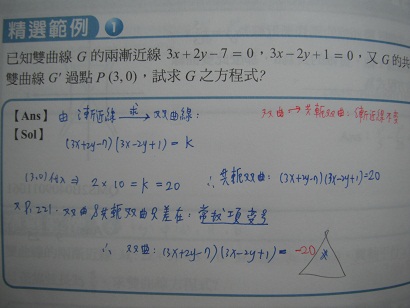 精選範例 1
已知雙曲線 G 的兩漸近線 3x+2y-7=0，3x-2y+1=0，又 G 的共
雙曲線 G′ 過點 P(3,0)，試求 G 之方程式?
【Ans】 由漸近線 求→ 双曲線：
双曲→共軛双曲：漸近線不変
【Sol】
(3x+2y-7)(3x-2y+1)=k
(3,0)代入⇒ 2×10=k=20 ∴共軛双曲：(3x+2y-7)(3x-2y+1)=20
P.221. 双曲與共軛双曲只差在：常数項变号
∴ 双曲：(3x+2y-7)(3x-2y+1)=-20